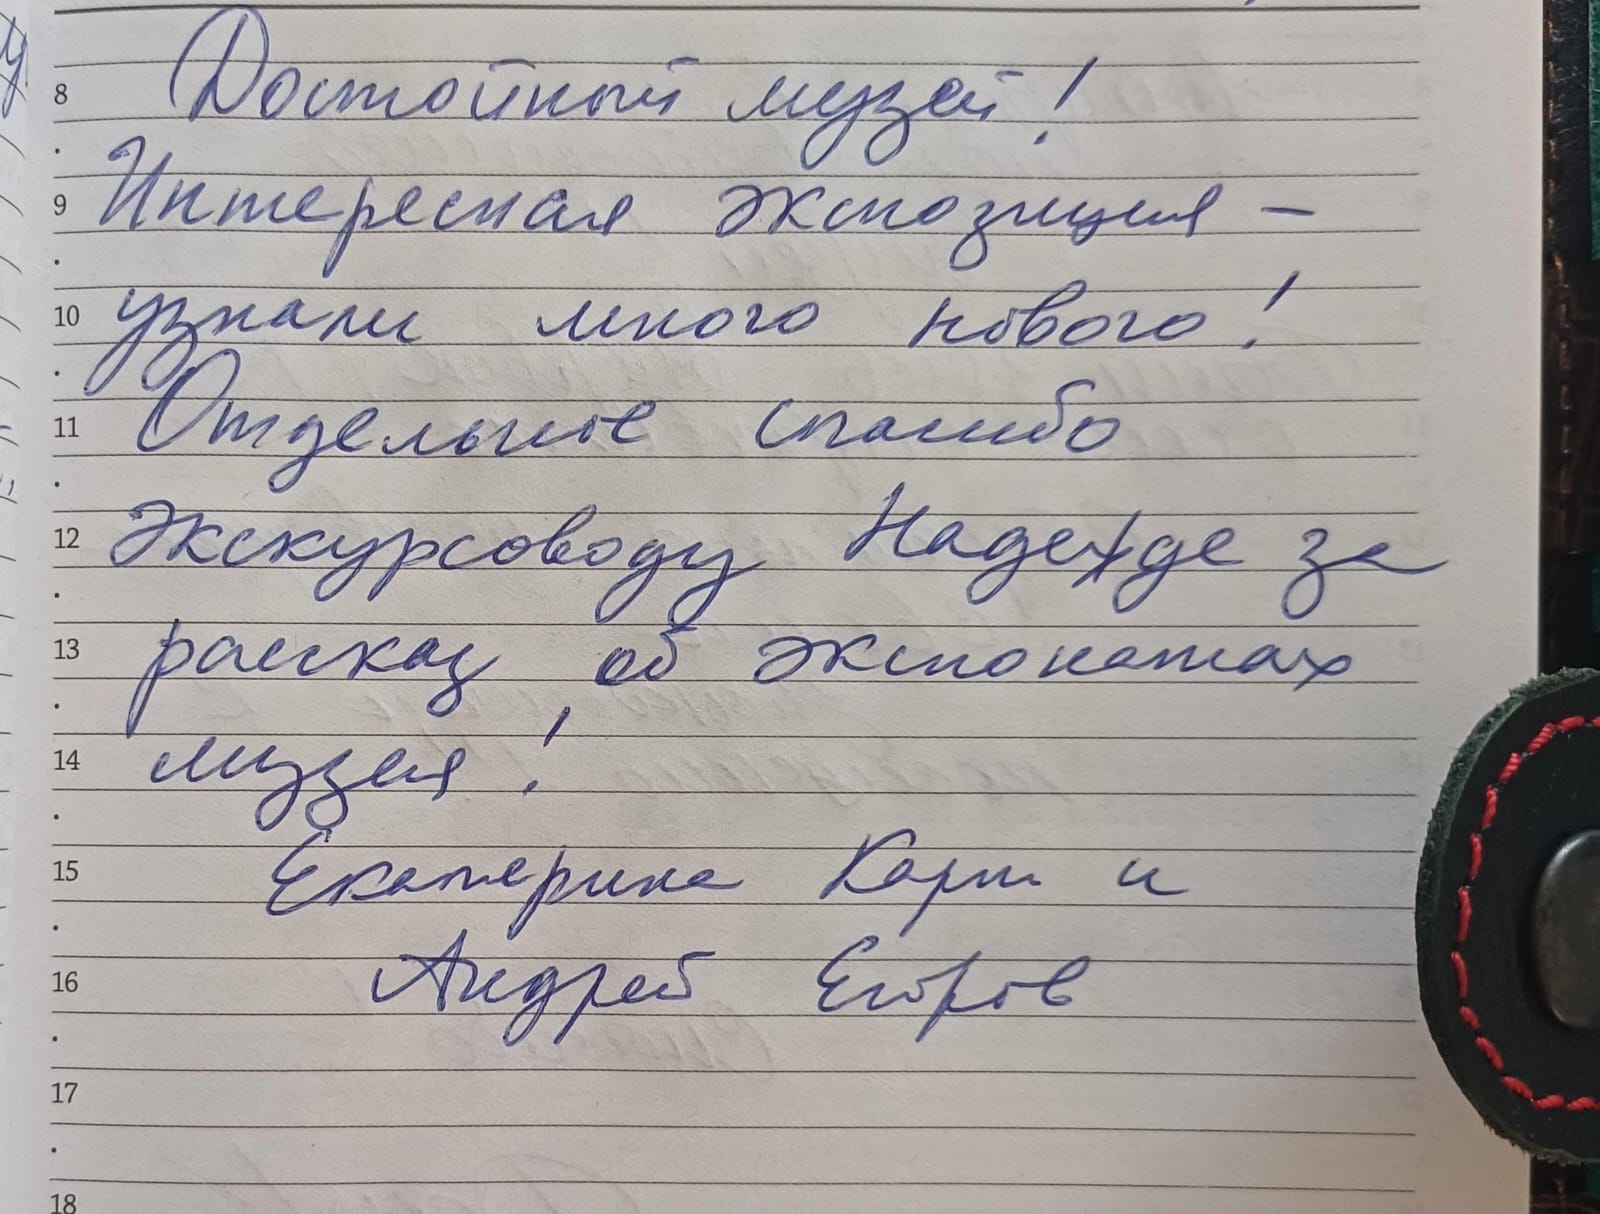 8 Достойный музей!
9 Интересная экспозиция –
10 узнали много нового!
11 Отдельное спасибо
12 экскурсоводу Надежде за
13 рассказ об экспонатах
14 музея!
15 Екатерина Карт и
16 Андрей Егоров
17
18